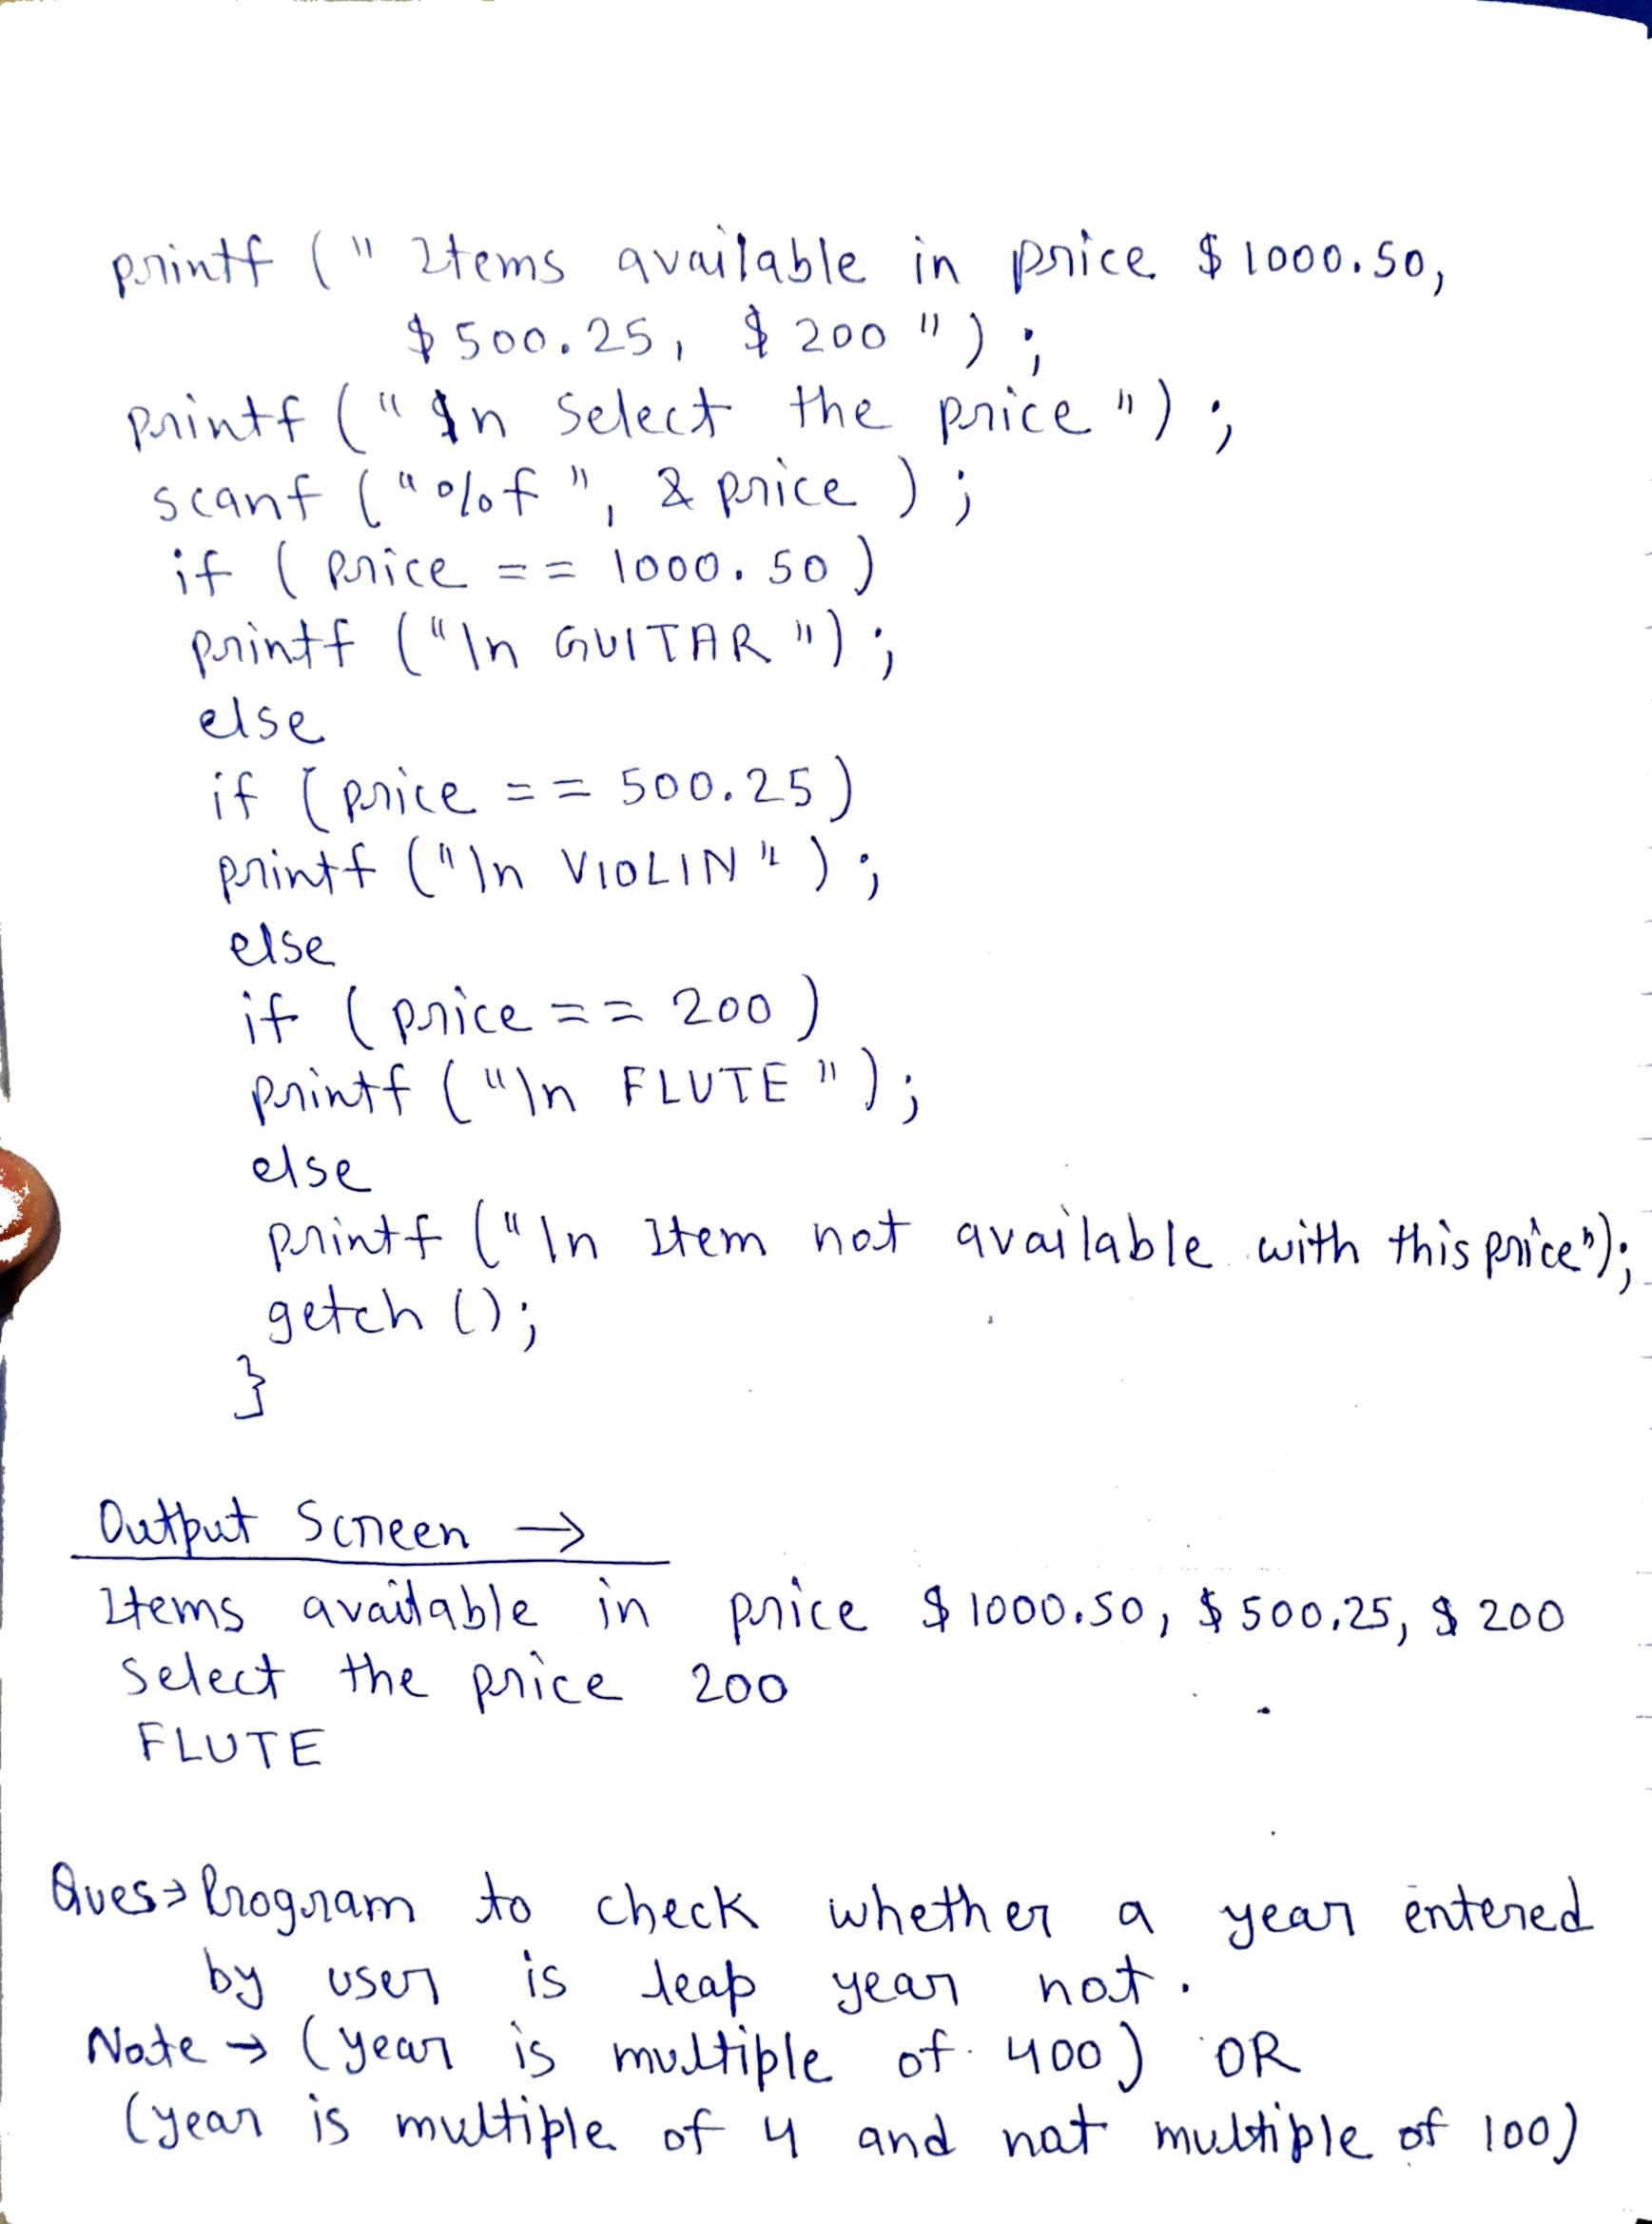 printf (" Items available in price $1000.50,
$500.25, $200 ");
printf ("\n Select the price ");
scanf ("%f", &price );
if ( Price == 1000.50)
printf ("\n GUITAR ");
else
if (price == 500.25)
printf ("\n VIOLIN");
else
if (price == 200)
printf ("\n FLUTE ");
else
printf ("\n Item not available with this price");
getch ();
}
Output Screen →
Items available in price $1000.50, $500.25, $200
Select the price 200
FLUTE
Ques→ Program to check whether a year entered
by user is leap year not.
Note → (year is multiple of 400) OR
(year is multiple of 4 and not multiple of 100)